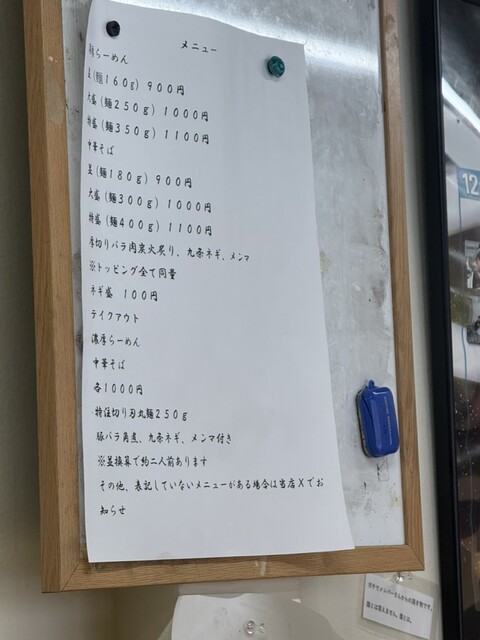 メニュー
らーめん
並(麺160g) 900円
大盛(麺250g) 1000円
特盛(麺350g) 1100円
中華そば
並(麺180g) 900円
大盛(麺300g) 1000円
特盛(麺400g) 1100円
厚切りバラ肉炭火炙り、九条ネギ、メンマ
※トッピング全て同量
ネギ盛 100円
テイクアウト
濃厚らーめん
中華そば
各1000円
特注切り刃丸麺250g
豚バラ角煮、九条ネギ、メンマ付き
※並換算で約二人前あります
その他、表記していないメニューがある場合は当店Xでお
知らせ
12